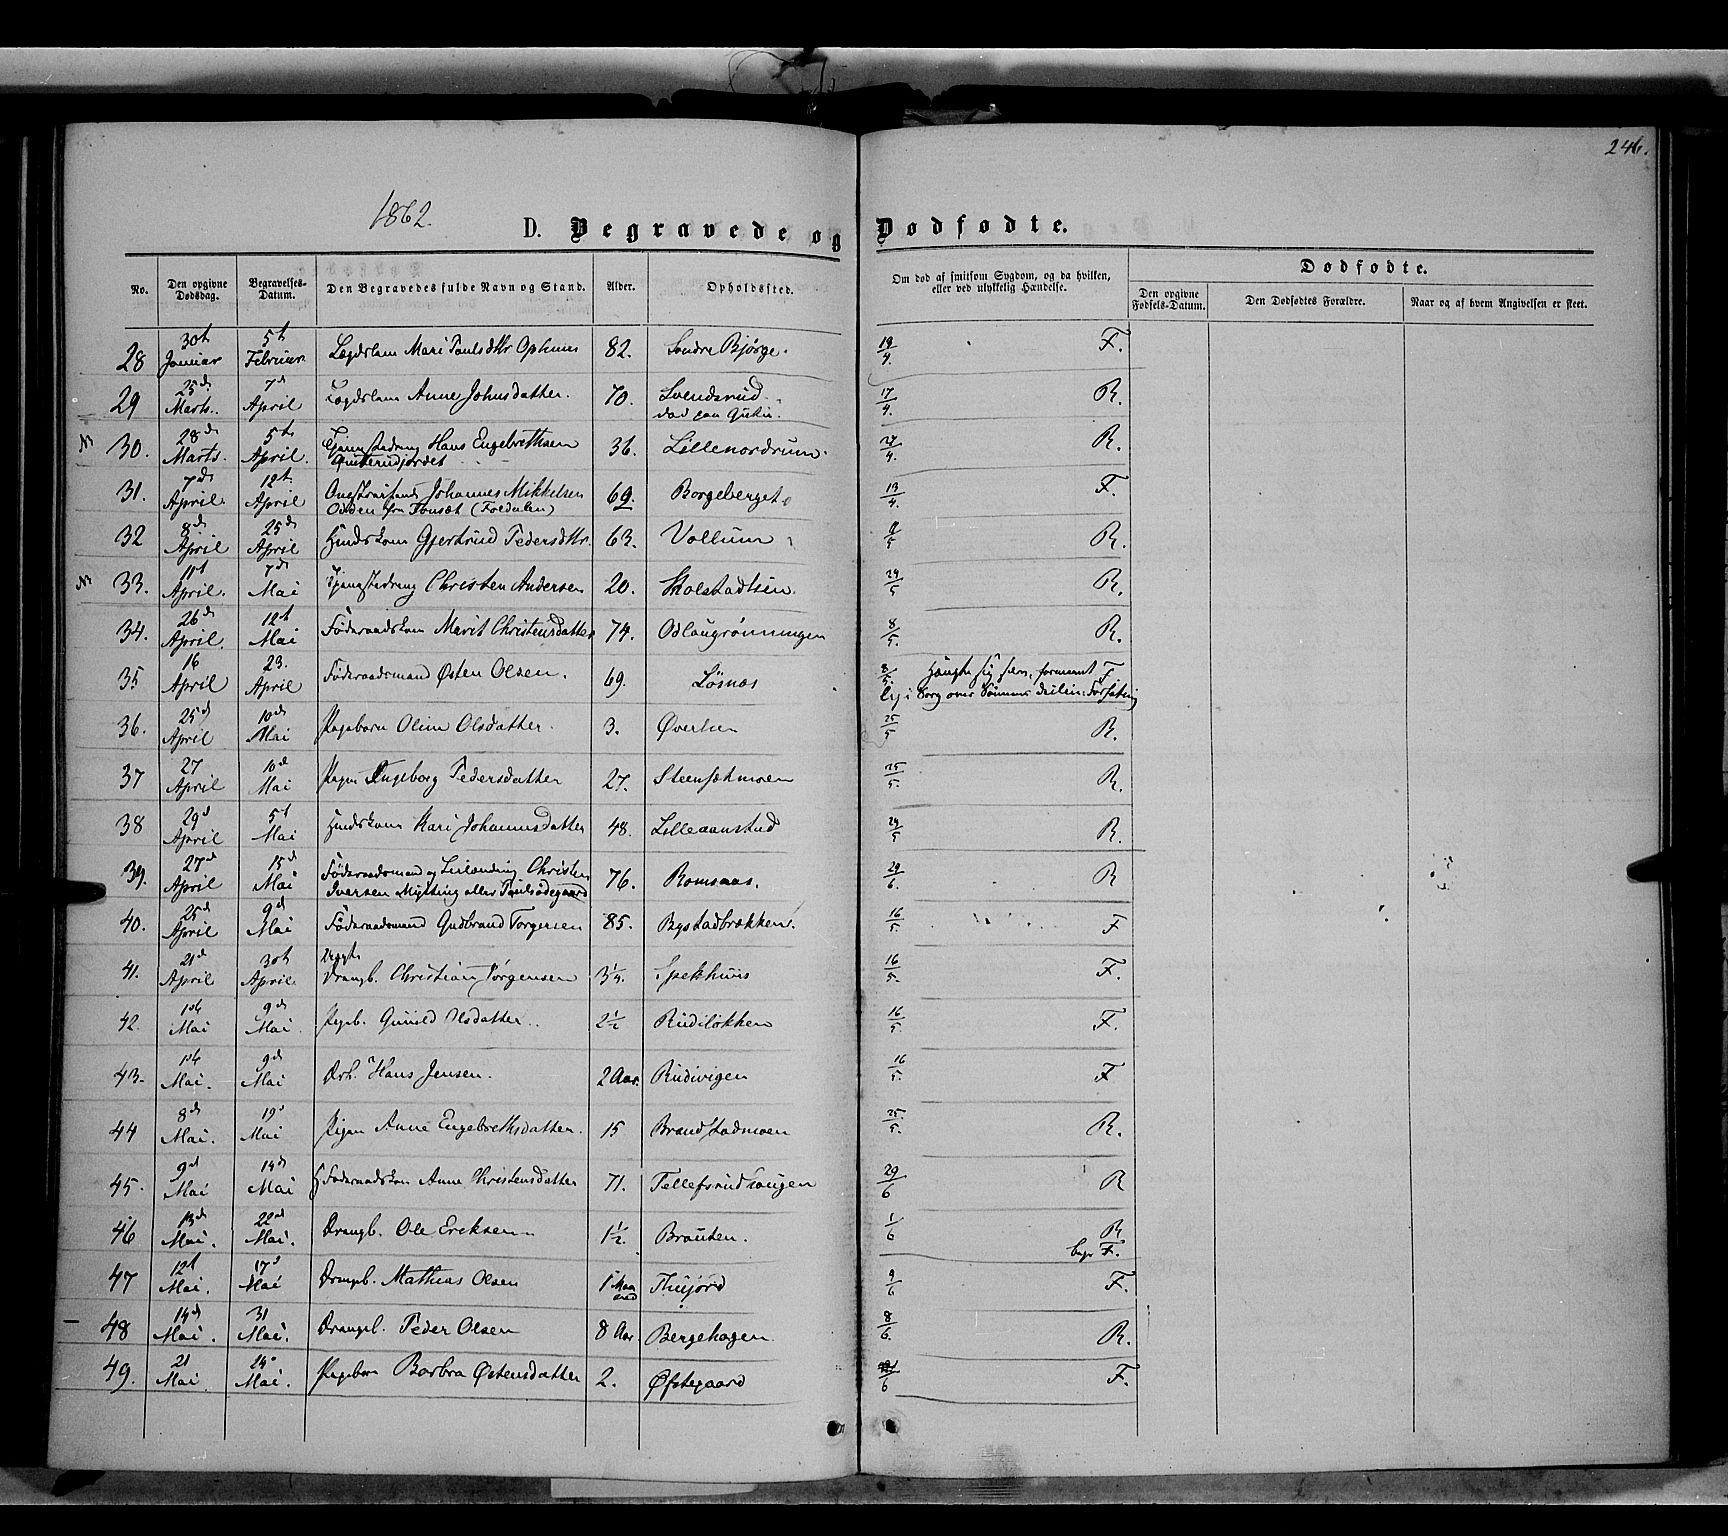 246.
1862.
D. Begravede og Dødfødte.
No.
Den opgivne Dødsdag.
Begravelses-Datum.
Den Begravedes fulde Navn og Stand.
Alder.
Opholdssted.
Om død af smitsom Sygdom, og da hvilken, eller ved ulykkelig Hændelse.
Dødfødte.
Den opgivne Fødsels-Datum.
Den Dødfødtes Forældre.
Naar og af hvem Angivelsen er skeet.
28 30t Januar 5t Februar Lægdslem Mari Paulsdttr Ophuus 82. Søndre Bjørge. 19/4. F.
29 25d Marts. 7d April Lægdslem Anne Johnsdatter. 70. Svendsrud 17/4. R.
død paa
30. 28d Marts. 5t April. Hans Engebrethsen 36. Lillenordrum. 27/4. R.
31. 7d April. 12t April Johannes Mikkelsen 69 Borgeberget. 13/4. F.
Odden fra Tonsæt (Foldalen)
32 8d April 25d April Huuskone Gjertrud Pedersdttr. 63. Vollum 9/5 R.
33. 11t April. 7d Mai Christen Andersen 20. Skolstadtsen. 29/5 R.
34. 26d April. 12t Mai Føderaadskone Marit Christensdatter 74. Odlaugrønningen 8/5. R.
35 16 April 23. April Føderaadsmand Østen Olsen. 69. Løsnæs 8/5. Hængte sig selv, formentF
lig i Sorg over Sønnens
36. 25d April 10d Mai Pigebarn Oline Olsdatter. 3. Øverlien 25/5 R.
37 27 April 10d Mai Pigen Ingeborg Pedersdatter 27. Steensætmoen 25/5. R.
38 29d April 5t Mai Huuskone Kari Johannesdatter 48. Lilleaanstad 29/5 R.
39. 27d April 15d Mai Føderaadsmand og Leilænding Christen 76. Romsaas. 29/6. R
Iversen Mytting eller Paulsødegaard
40. 25d April 9d Mai Føderaadsmand Gudbrand Torgersen 85. Bystadbrækken. 16/5. F
41. 21d April 30t April Drengb. Christian Jørgensen 3 1/4. Spekhuus 16/5. F.
42. 1st Mai 9d Mai. Pigeb. Gunild Olsdatter. 2 1/2 Rudiløkken 16/5. F.
43. 1st Mai. 9d Mai Drb. Hans Jensen. 2 Aar. Rudivigen 16/5. F
44 8d Mai. 19d Mai Pigen Anne Engebrethsdatter. 15 Brandstadmoen 25/5. R.
45. 9d Mai 14d Mai Føderaadskone Anne Christensdatter 71. Tellefsrudhaugen 29/6 R
46 13d Mai. 22d Mai. Drengb. Ole Ericksen 1 1/2. Bråuten. 1/6 R
begr F.
47 12t Mai. 17d Mai Drengb. Mathias Olsen 1 Maaned Thujord 9/6 F.
48 14d Mai. 31 Mai. Drengeb. Peder Olsen 8 Aar. Bergehagen. 8/6. R.
49. 21 Mai. 14d Mai. Pigebarn Barbra Østensdatter 2. Øfstegaard /6 F.